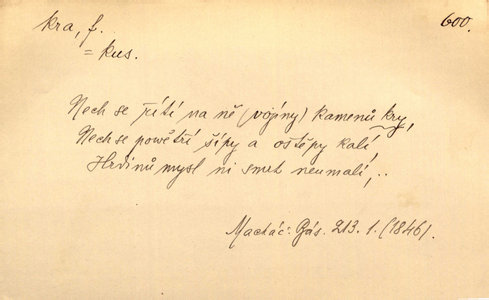 kra, f.
600.
= kus.
Nech se řítí na ně (vojíny) kamenů kry,
Nech se powětří šípy a oštěpy kalí,
Hrdinů mysl ni smrt neumalí,..
Macháč: Bás. 213. 1. (1846).